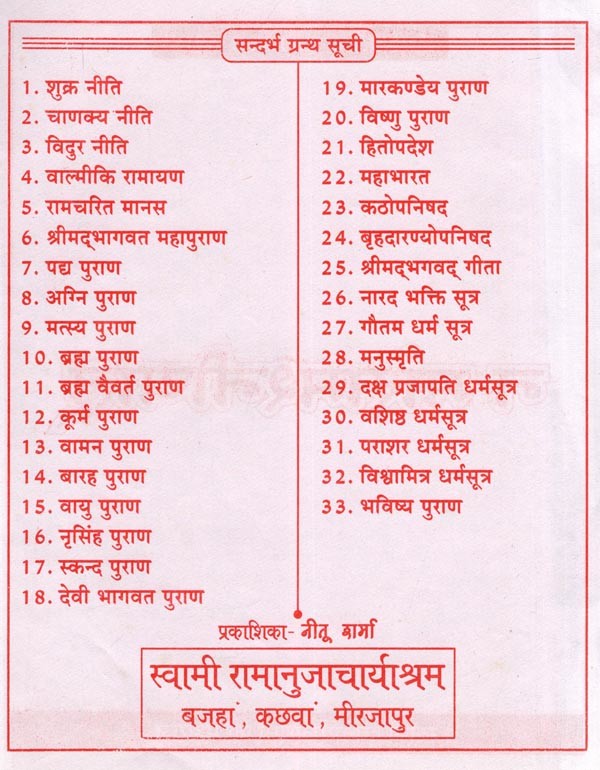 सन्दर्भ ग्रन्थ सूची
1. शुक्र नीति
2. चाणक्य नीति
3. विदुर नीति
4. वाल्मीकि रामायण
5. रामचरित मानस
6. श्रीमद्भागवत महापुराण
7. पद्य पुराण
8. अग्नि पुराण
9. मत्स्य पुराण
10. ब्रह्म पुराण
11. ब्रह्म वैवर्त पुराण
12. कूर्म पुराण
13. वामन पुराण
14. बारह पुराण
15. वायु पुराण
16. नृसिंह पुराण
17. स्कन्द पुराण
18. देवी भागवत पुराण
19. मारकण्डेय पुराण
20. विष्णु पुराण
21. हितोपदेश
22. महाभारत
23. कठोपनिषद
24. बृहदारण्योपनिषद
25. श्रीमद्भगवद् गीता
26. नारद भक्ति सूत्र
27. गौतम धर्म सूत्र
28. मनुस्मृति
29. दक्ष प्रजापति धर्मसूत्र
30. वशिष्ठ धर्मसूत्र
31. पराशर धर्मसूत्र
32. विश्वामित्र धर्मसूत्र
33. भविष्य पुराण
प्रकाशिका- नीतू शर्मा
स्वामी रामानुजाचार्याश्रम
बजहां, कछवां, मीरजापुर